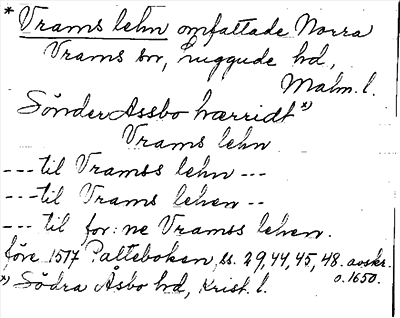 * Vrams lehn omfattade Norra
Vrams sn, Luggude hd,
Malm. l.
Sönder Assbo hærridt *)
Vrams lehn
--- til Vramss lehn ---
--- til Vrams lehen --
--- til for: ne Vramss lehen.
före 1517 Palteboken, ss. 29, 44, 45, 48. avskr.
o. 1650.
*) Södra Åsbo hd, Krist. l.